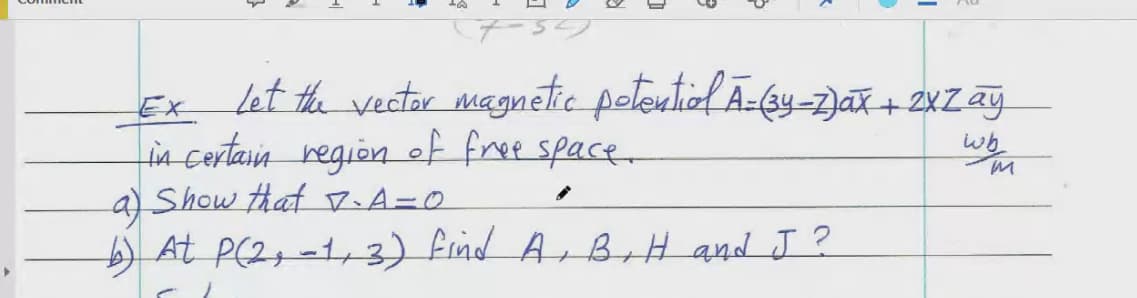 Comment
Ex Let the vector magnetic potential A̅=(3y-z)a̅x̅ + 2xz a̅y̅
in certain region of free space. wb/m
a) Show that ∇.A=0
b) At P(2, -1, 3) find A, B, H and J ?